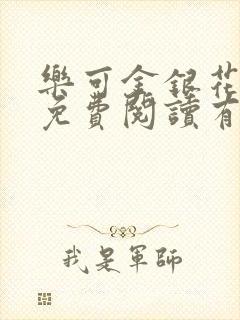 樂可金銀花
免費閱讀有
我是軍師